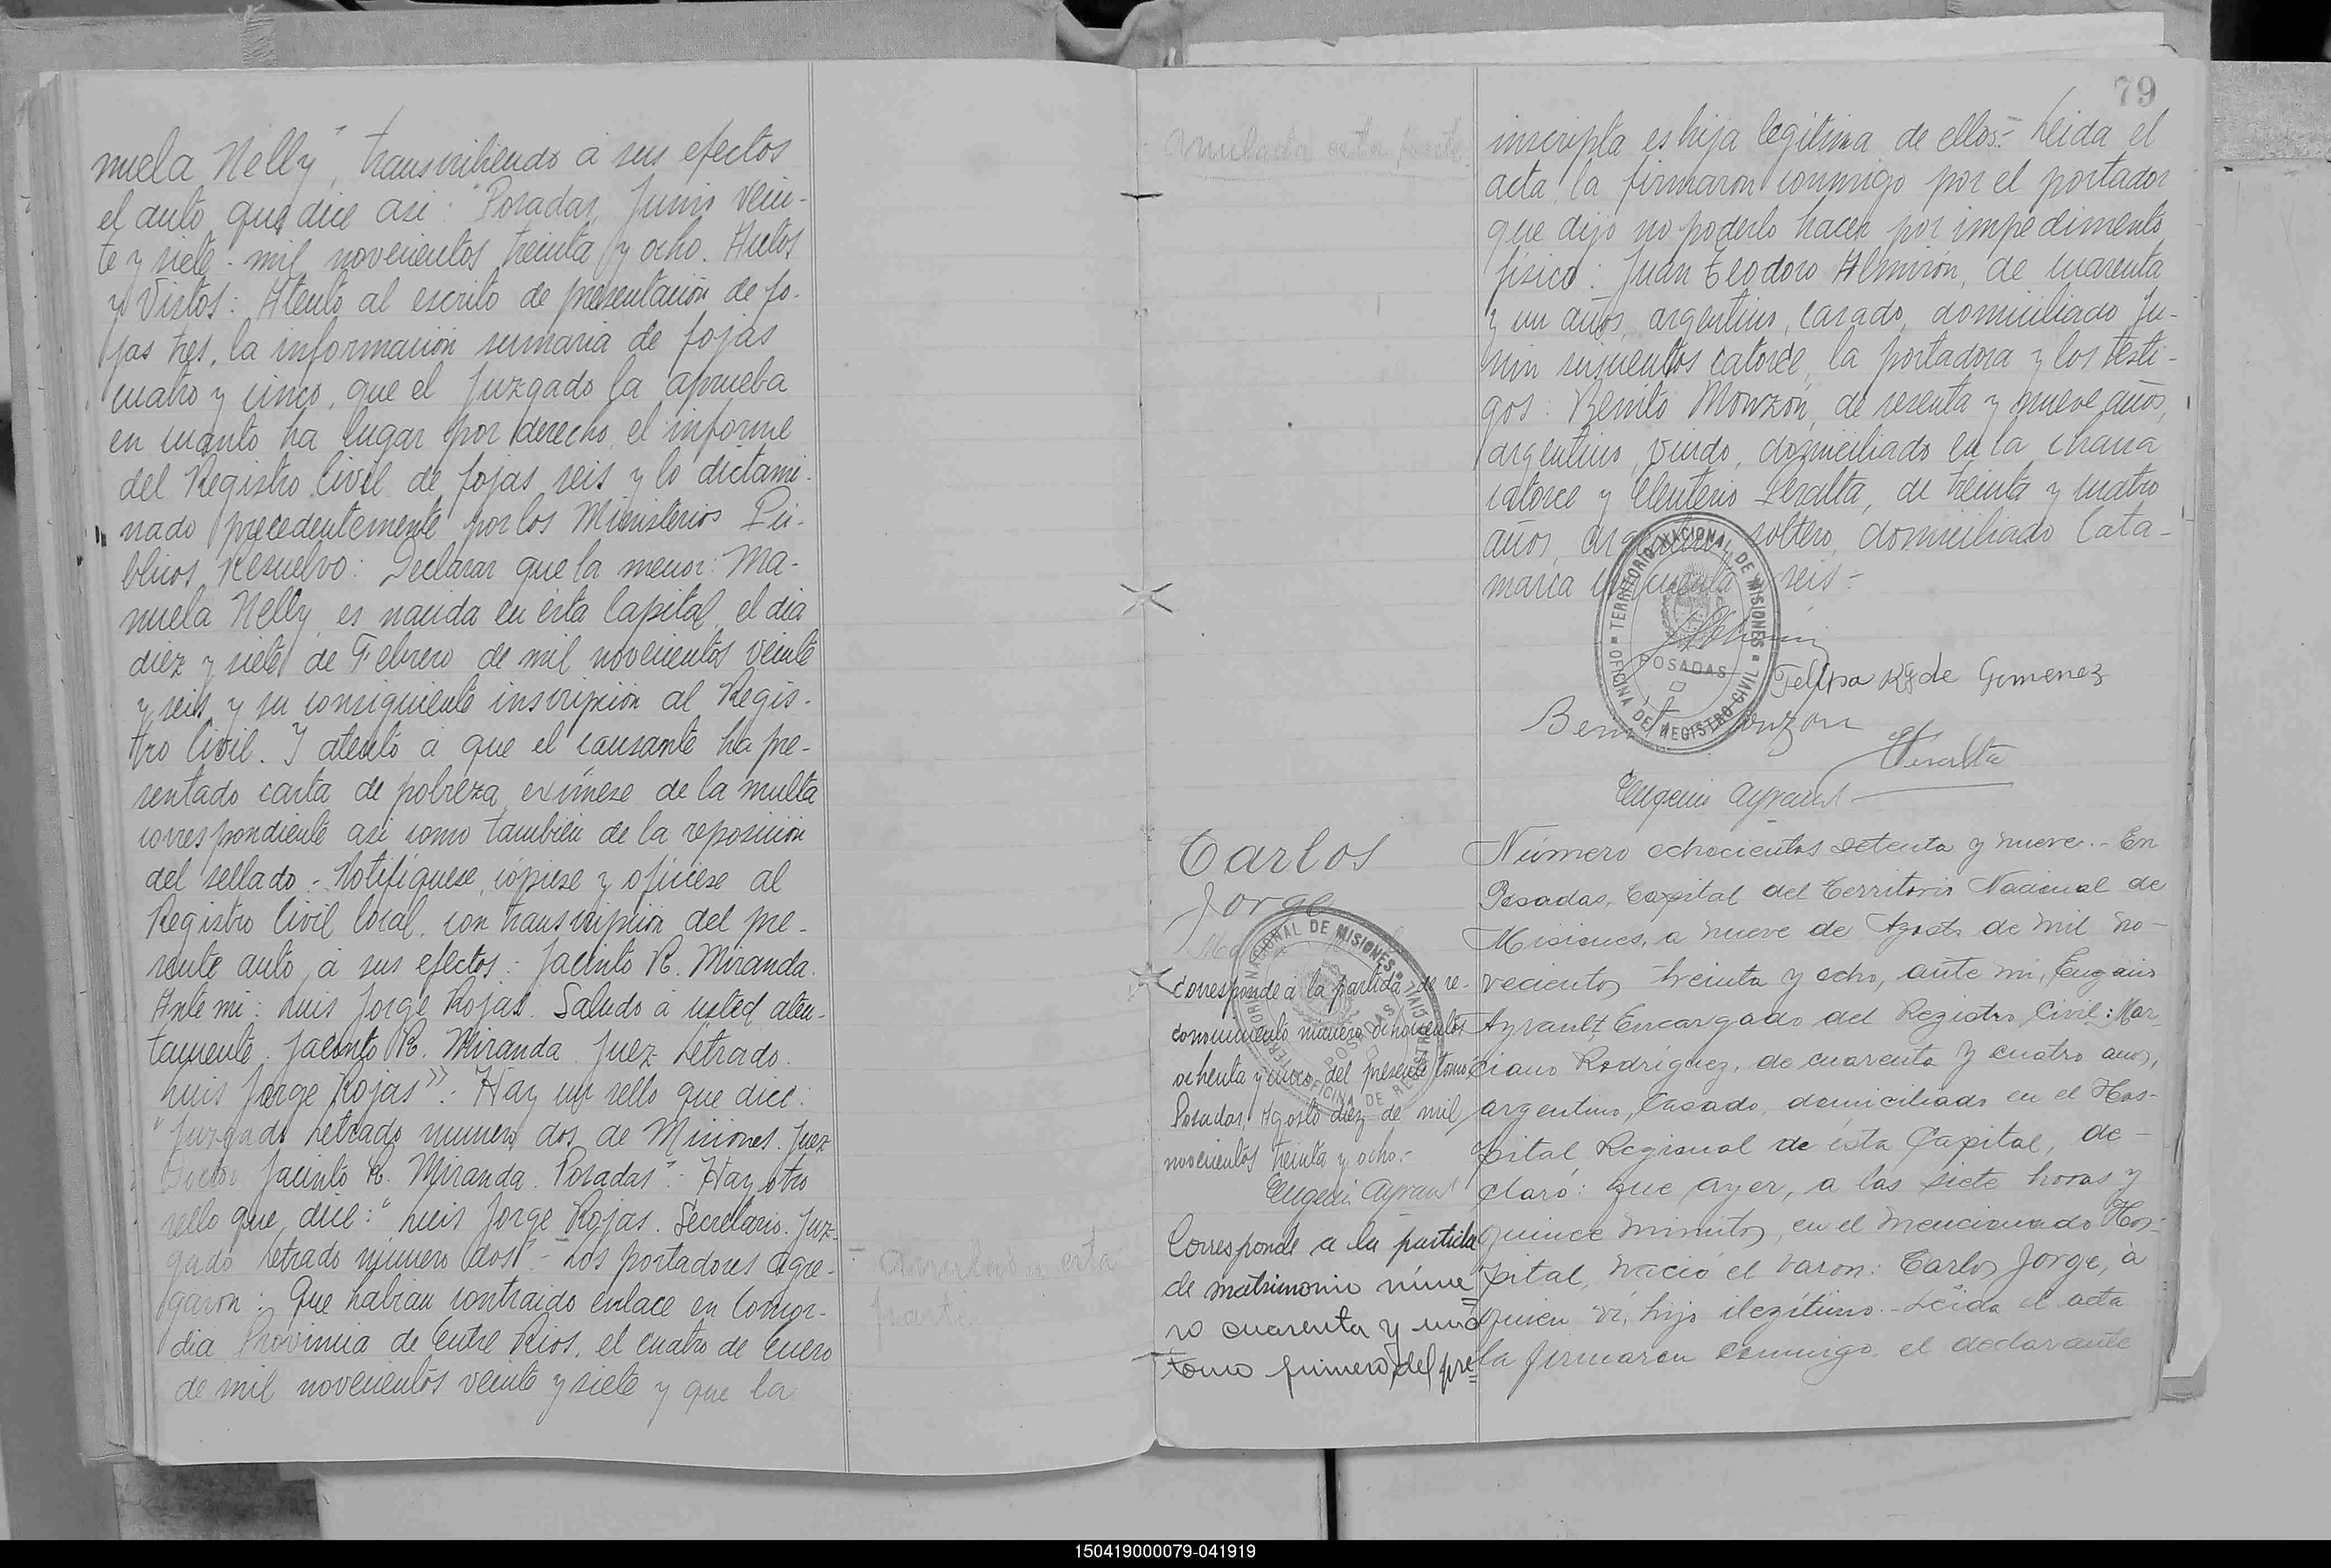 nuela Nelly", transcribiendo á sus efectos
el auto que dice asi: "Posadas, Junio vein-
te y siete - mil novecientos treinta y ocho. Autos
y Vistos: Atento al escrito de presentación de fo-
jas tres, la información sumaria de fojas
cuatro y cinco, que el Juzgado la aprueba
en cuanto ha lugar por derecho, el informe
del Registro Civil de fojas seis y lo dictami-
nado precedentemente por los Ministerios Pú-
blicos, Resuelvo: Declarar que la menor: Ma-
nuela Nelly, es nacida en ésta Capital, el dia
diez y siete de Febrero de mil novecientos veinte
y seis y su consiguiente inscripción al Regis-
tro Civil. I atento á que el causante ha pre-
sentado carta de pobreza, exímese de la multa
correspondiente asi como también de la reposición
del sellado.- Notifíquese, cópiese y ofíciese al
Registro Civil local, con transcripción del pre-
sente auto, á sus efectos.- Jacinto R. Miranda.
Ante mi: Luis Jorge Rojas. Saludo á usted aten-
tamente. Jacinto R. Miranda. Juez Letrado.
Luis Jorge Rojas".- Hay un sello que dice:
"Juzgado Letrado numero dos de Misiones. Juez
Doctor Jacinto R. Miranda. Posadas".- Hay otro
sello que dice: "Luis Jorge Rojas. Secretario. Juz-
gado Letrado número dos".- Los portadores agre-
garon: Que habian contraido enlace en Concor-
dia Provincia de Entre Rios, el cuatro de Enero
de mil novecientos veinte y siete y que la
Anulada esta
parte
79
Anulada esta parte
inscripta es hija legítima de ellos.- Leida el
acta, la firmaron conmigo por el portador
que dijo no poderlo hacer por impedimento
físico: Juan Teodoro Almirón, de cuarenta
y un años, argentino, casado, domiciliado Ju-
nin seiscientos catorce, la portadora y los testi-
gos: Benito Monzón, de sesenta y nueve años,
argentino, viudo, domiciliado en la chacra
catorce y Eleuterio Peralta, de treinta y cuatro
años, argentino, soltero, domiciliado Cata-
marca cincuenta seis.-
TERRITORIO NACIONAL DE MISIONES
OFICINA DE REGISTRO CIVIL
POSADAS
Felipa R. de Gimenez
Benito Monzon
Peralta
Eugenio Ayrault
Carlos
Jorge
TERRITORIO NACIONAL DE MISIONES
OFICINA DE REGISTRO CIVIL
POSADAS
Corresponde á la partida de re-
conocimiento número ochocientos
ochenta y cinco, del presente tomo
Posadas, Agosto diez de mil
novecientos treinta y ocho.-
Eugenio Ayrault
Corresponde a la partida
de matrimonio núme=
ro cuarenta y uno
tomo primero, del pre=
Número ochocientos setenta y nueve.- En
Posadas, Capital del Territorio Nacional de
Misiones, a nueve de Agosto de mil no-
vecientos treinta y ocho, ante mi, Eugenio
Ayrault, Encargado del Registro Civil: Mar-
ciano Rodríguez, de cuarenta y cuatro años,
argentino, Casado, domiciliado en el Hos-
pital Regional de ésta Capital, de-
claró: que ayer, a las siete horas y
quince minutos, en el mencionado Hos-
pital, nació el varon: Carlos Jorge, à
quien ví, hijo ilegítimo.- Leida el acta
la firmaron conmigo, el declarante
150419000079-041919